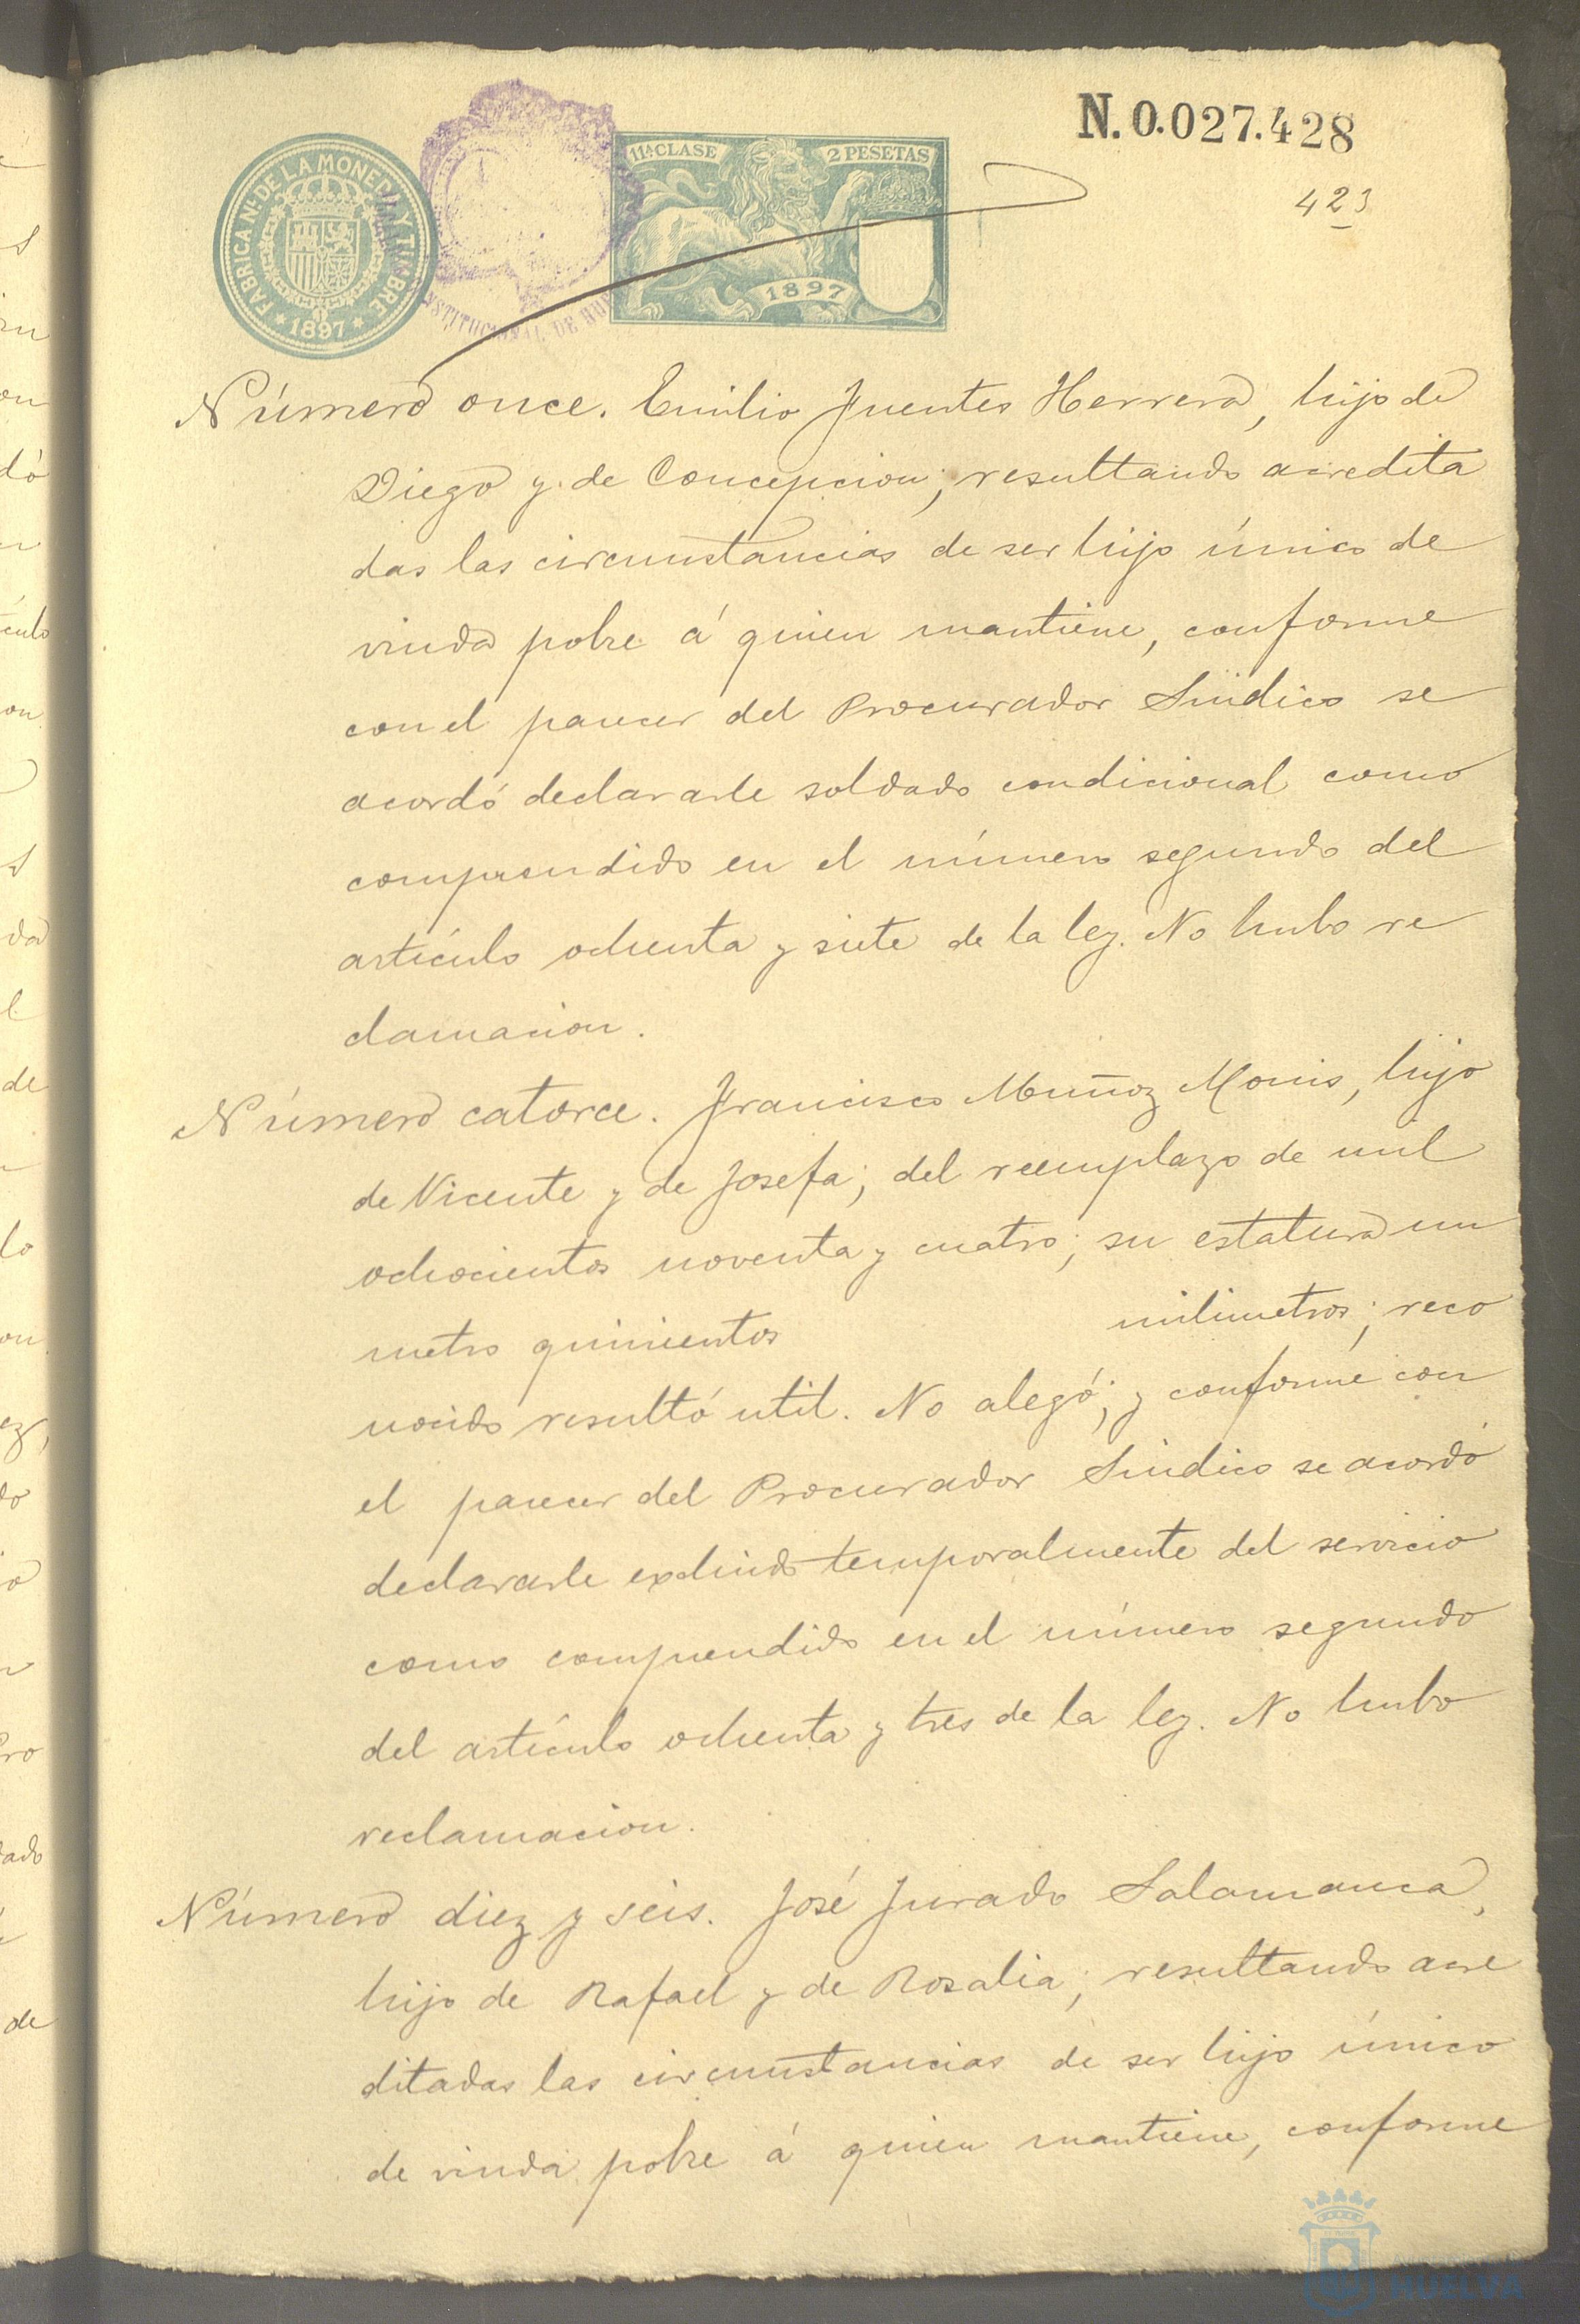 N.0.027.428
423
FABRICA Nl. DE LA MONEDA Y TIMBRE
* 1897 *
11ª CLASE
2 PESETAS
1897
CONSTITUCIONAL DE HUELVA
Número once. Emilio Fuentes Herrera, hijo de
Diego y de Concepcion; resultando acredita
das las circunstancias de ser hijo único de
viuda pobre á quien mantiene, conforme
con el parecer del Procurador Síndico se
acordó declararle soldado condicional como
comprendido en el número segundo del
artículo ochenta y siete de la ley. No hubo re
clamacion.
Número catorce. Francisco Muñoz Monis, hijo
de Vicente y de Josefa; del reemplazo de mil
ochocientos noventa y cuatro; su estatura un
metro quinientos milimetros; reco
nocido resultó util. No alegó; y conforme con
el parecer del Procurador Síndico se acordó
declararle excluido temporalmente del servicio
como comprendido en el número segundo
del artículo ochenta y tres de la ley. No hubo
reclamacion.
Número diez y seis. José Jurado Salamanca,
hijo de Rafael y de Rosalia; resultando acre
ditadas las circunstancias de ser hijo único
de viuda pobre á quien mantiene, conforme
HUELVA